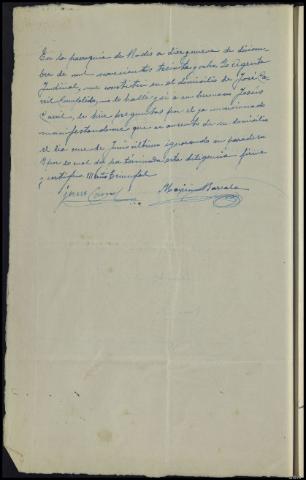 En la parroquia de Rodis a diez y nueve de diciem
bre de mil novecientos treinta y ocho. Yo Agente
Judicial, me constituí en el domicilio de José Ca
rril Cumplido, no le hallé, y si a su hermano Jesús
Carril, le hice preguntas por el ya mencionado
manifestandome que se ausentó de su domicilio
el dia nueve de Junio último ignorando su paradero
Y por lo cual doy por terminada esta diligencia firma
y certifico III Año Triunfal
Jesus Carril Maximino Barcala